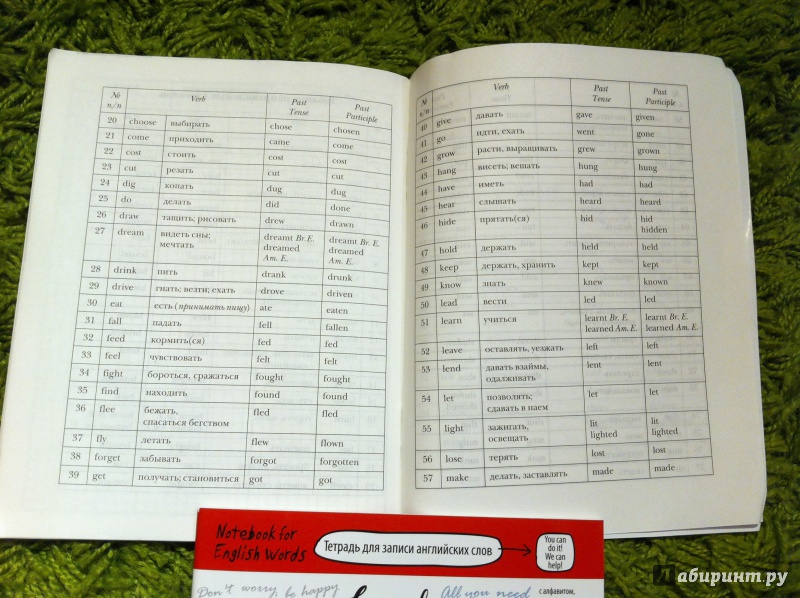 № п/п Verb Past Tense Past Participle
20 choose выбирать chose chosen
21 come приходить came come
22 cost стоить cost cost
23 cut резать cut cut
24 dig копать dug dug
25 do делать did done
26 draw тащить; рисовать drew drawn
27 dream видеть сны; dreamt Br. E. dreamt Br. E.
мечтать dreamed dreamed
Am. E. Am. E.
28 drink пить drank drunk
29 drive гнать; везти; ехать drove driven
30 eat есть (принимать пищу) ate eaten
31 fall падать fell fallen
32 feed кормить(ся) fed fed
33 feel чувствовать felt felt
34 fight бороться, сражаться fought fought
35 find находить found found
36 flee бежать, fled fled
спасаться бегством
37 fly летать flew flown
38 forget забывать forgot forgotten
39 get получать; становиться got got
№ п/п Verb Past Tense Past Participle
40 give давать gave given
41 go идти, ехать went gone
42 grow расти, выращивать grew grown
43 hang висеть; вешать hung hung
44 have иметь had had
45 hear слышать heard heard
46 hide прятать(ся) hid hid
hidden
47 hold держать held held
48 keep держать, хранить kept kept
49 know знать knew known
50 lead вести led led
51 learn учиться learnt Br. E. learnt Br. E.
learned Am. E. learned Am. E.
52 leave оставлять, уезжать left left
53 lend давать взаймы, lent lent
одалживать
54 let позволять; let let
сдавать в наем
55 light зажигать, lit lit
освещать lighted lighted
56 lose терять lost lost
57 make делать, заставлять made made
Notebook for
English Words
Тетрадь для записи английских слов
You can
do it!
We can
help!
Don't worry, be happy
All you need
с алфавитом,
Лабиринт.ру